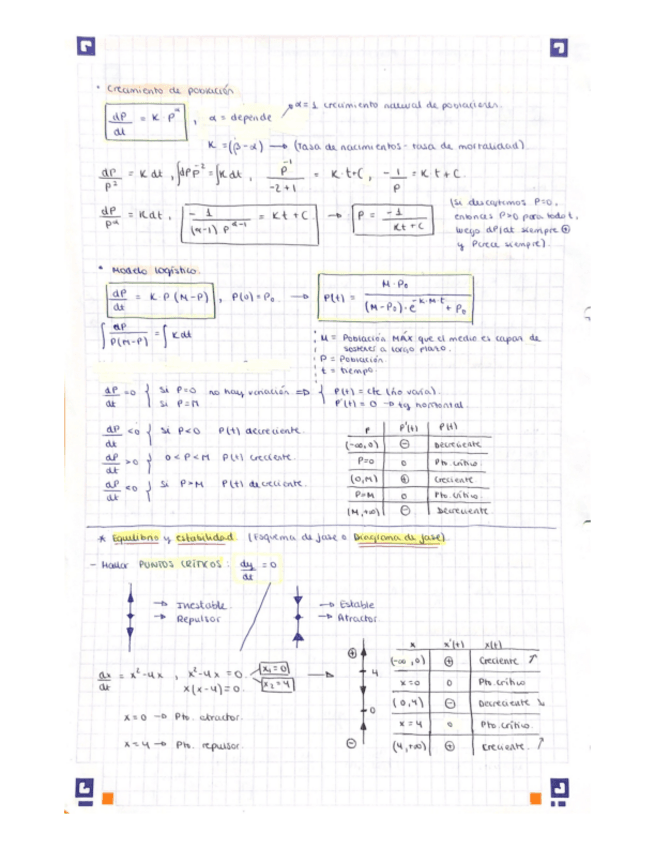 * Crecimiento de población
dP/dt = K · P^α , α = depende ↗ α = 1 crecimiento natural de poblaciones.
K = (β - α) → (Tasa de nacimientos - tasa de mortalidad)
dP/P² = K dt , ∫dP P⁻² = ∫K dt , P⁻¹/-2+1 = K·t+C , -1/P = K t + C.
dP/P^α = K dt , -1/(α-1) P^α-1 = K t + C → P = -1/Kt + C
(Si descartemos P=0,
entonces P>0 para todo t,
luego dP/dt siempre ⊕
y P crece siempre).
* Modelo logístico.
dP/dt = K · P (M-P) , P(0) = P₀ → P(t) = M · P₀/(M-P₀) · e^-K·M·t + P₀
∫ dP/P(M-P) = ∫ K dt
M = Población MÁX que el medio es capaz de
sostener a largo plazo.
P = Población
t = tiempo
dP/dt = 0 { Si P=0 no hay variación ⇒ { P(t) = cte (no varía).
Si P=M P'(t) = 0 → tg horizontal
dP/dt < 0 } si P<0 P(t) decreciente.
dP/dt > 0 } 0 < P < M P(t) creciente.
dP/dt < 0 } si P>M P(t) decreciente.
P P'(t) P(t)
(-∞, 0) ⊖ Decreciente
P=0 0 Pto. crítico
(0, M) ⊕ Creciente
P=M 0 Pto. crítico
(M, +∞) ⊖ Decreciente
* Equilibrio y estabilidad. (Esquema de fase o Diagrama de fase)
- Hallar PUNTOS CRÍTICOS: dy/dt = 0
→ Inestable
→ Repulsor
→ Estable
→ Atractor.
dx/dt = x² - 4x , x² - 4x = 0. x₁ = 0
x(x-4) = 0. x₂ = 4
x = 0 → Pto. atractor.
x = 4 → Pto. repulsor.
⊕
4
0
⊖
x x'(t) x(t)
(-∞, 0) ⊕ Creciente ↗
x=0 0 Pto. crítico
(0, 4) ⊖ Decreciente ↘
x=4 0 Pto. crítico.
(4, +∞) ⊕ Creciente. ↗